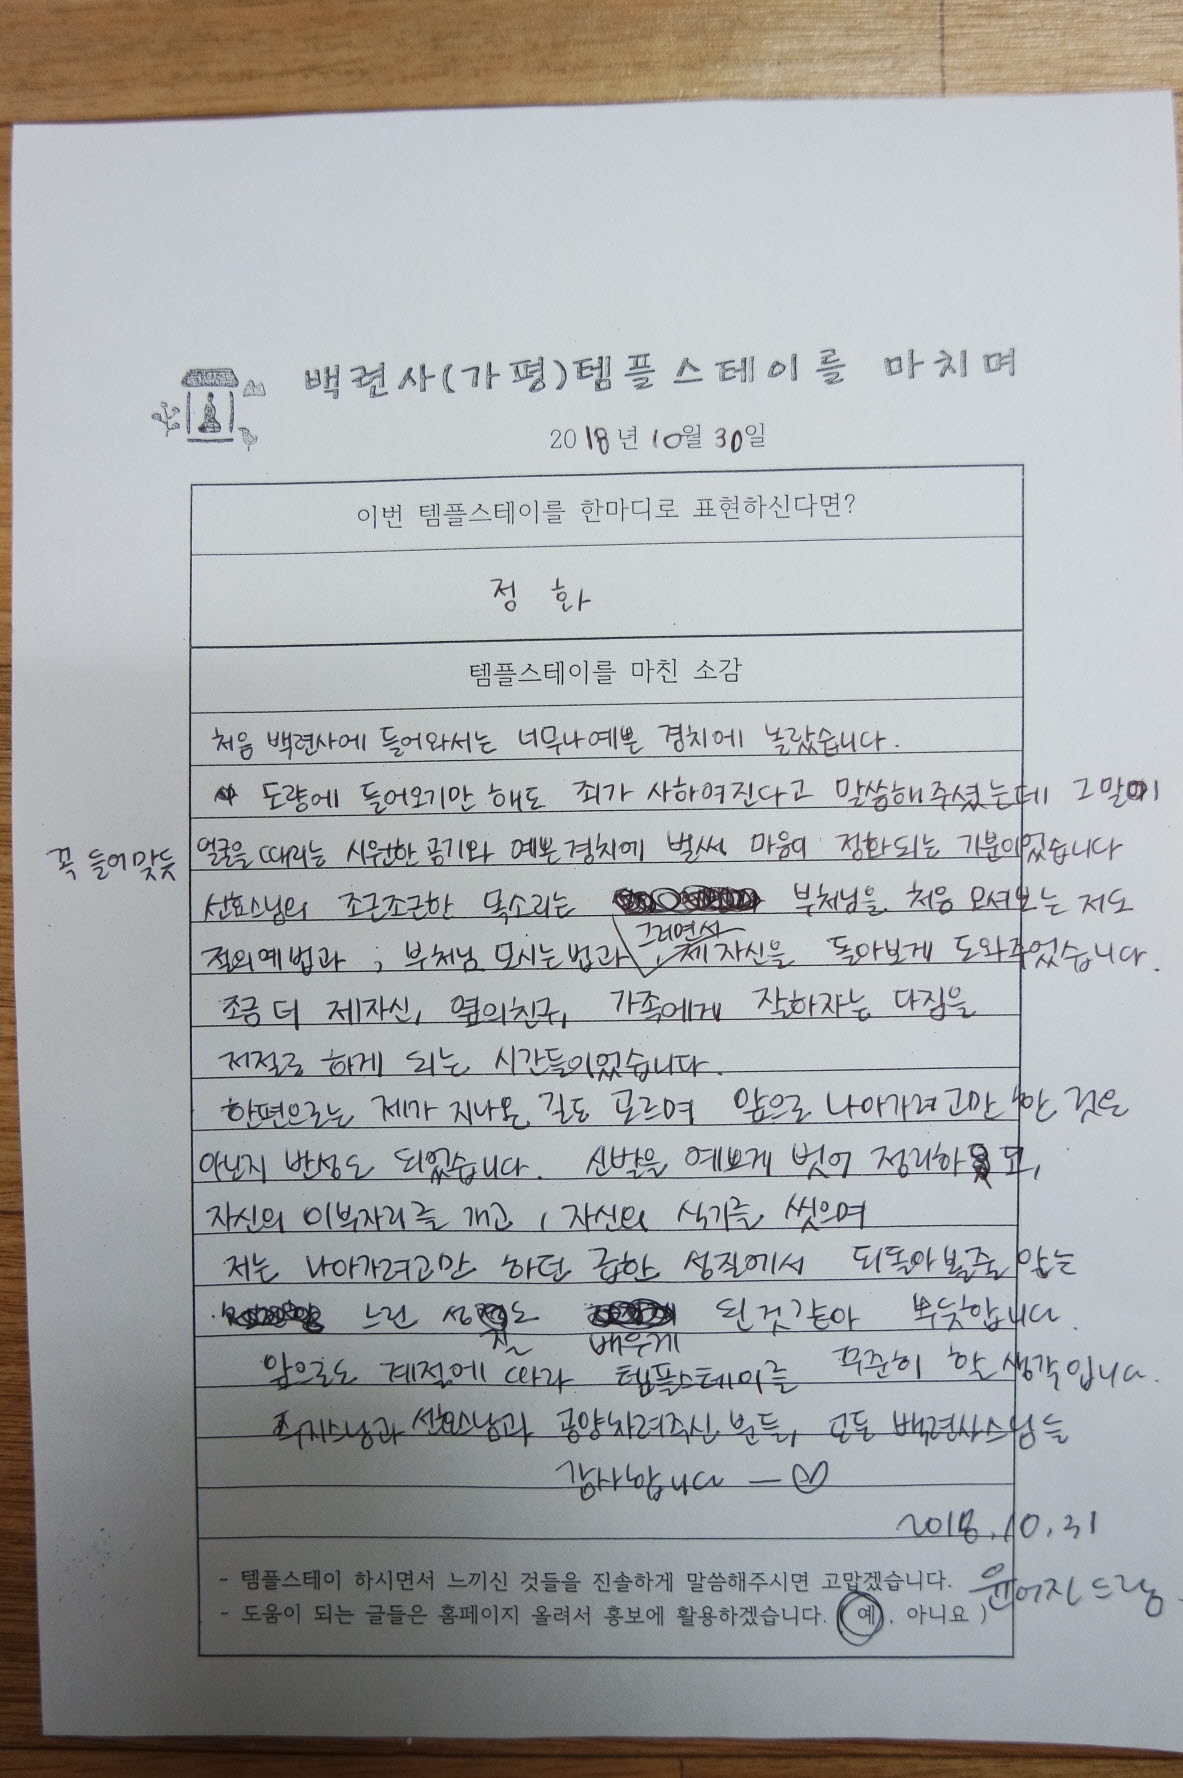 백련사(가평)템플스테이를 마치며
2018년 10월 30일
이번 템플스테이를 한마디로 표현하신다면?
정 화
템플스테이를 마친 소감
처음 백련사에 들어와서는 너무나 예쁜 경치에 놀랐습니다.
도량에 들어오기만 해도 죄가 사하여진다고 말씀해주셨는데 그말이
꼭 들어맞듯 얼굴을 때리는 시원한 공기와 예쁜 경치에 벌써 마음이 정화되는 기분이었습니다
선효스님의 조근조근한 목소리는 부처님을 처음 모셔보는 저도
절의 예법과, 부처님 모시는 법과 그러면서 제 자신을 돌아보게 도와주었습니다.
조금 더 제자신, 옆의 친구, 가족에게 잘하자는 다짐을
저절로 하게 되는 시간들이었습니다.
한편으로는 제가 지나온 길도 모르며 앞으로 나아가려고만 한 것은
아닌지 반성도 되었습니다. 신발을 예쁘게 벗어 정리하고,
자신의 이부자리를 개고, 자신의 식기를 씻으며
저는 나아가려고만 하던 급한 성질에서 되돌아볼줄 아는
느린 성질도 배우게 된것같아 뿌듯합니다.
앞으로도 계절에 따라 템플스테이를 꾸준히 할 생각입니다.
주지스님과 선효스님과 공양차려주신 분들, 모든 백련사스님들
감사합니다 — ♡
2018.10.31
윤어진 드림.
- 템플스테이 하시면서 느끼신 것들을 진솔하게 말씀해주시면 고맙겠습니다.
- 도움이 되는 글들은 홈페이지 올려서 홍보에 활용하겠습니다. (예, 아니요)